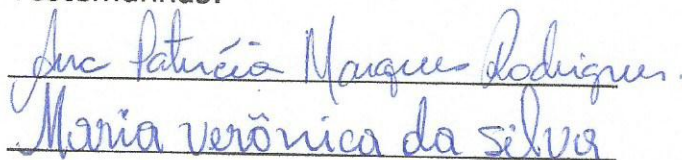 Testemunhas:
Ana Patrícia Marques Rodrigues.
Maria verônica da silva